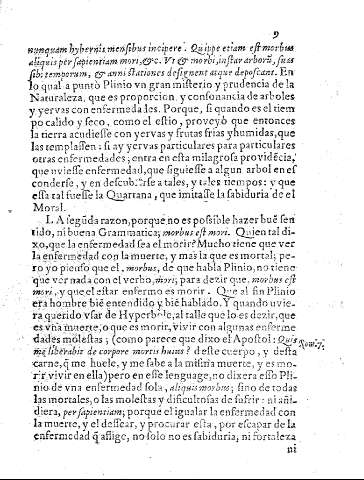 9
nunquam hybernis mensibus incipere. Quippe etiam est morbus
aliquis per sapientiam mori, &c. Vt & morbi, instar arborũ, sua
sibi temporum, & anni stationes designent atque deposcant. En
lo qual a puntò Plinio vn gran misterio y prudencia de la
Naturaleza, que es proporcion, y consonancia de arboles
y yervas con enfermedades. Porque, si quando es el tiem
po calido y seco, como el estio, proveyò que entonces
la tierra acudiesse con yervas y frutas frias y humidas, que
las templassen: si ay yervas particulares para particulares
otras enfermedades; entra en esta milagrosa providẽcia,
que uviesse enfermedad, que siguiesse a algun arbol en es
conderse, y en descubrirse a tales, y tales tiempos: y que
essa tal fuesse la Quartana, que imitasse la sabiduria de el
Moral.
LA segũda razon, porque no es possible hazer buẽ sen
tido, ni buena Grammatica; morbus est mori. Quien tal di
xo, que la enfermedad sea el morir? Mucho tiene que ver
la enfermedad con la muerte, y mas la que es mortal; pe-
ro yo pienso que el, morbus, de que habla Plinio, no tiene
que ver nada con el verbo, mori; para dezir que, morbus est
mori, y que el estar enfermo es morir. Que al fin Plinio
era hombre biẽ entendido y biẽ hablado. Y quando uvie
ra querido vsar de Hyperbole, al talle que lo es dezir, que
es vna muerte, o que es morir, vivir con algunas enferme
dades molestas; (como parece que dixo el Apostol: Quis
me liberabit de corpore mortis huius? deste cuerpo, y desta
Rom. 7.
carne, q̃ me huele, y me sabe a la misma muerte, y es mo-
rir, vivir en ella) pero en esse lenguage, no dixera esso Pli-
nio de vna enfermedad sola, aliquis morbus; sino de todas
las mortales, o las molestas y dificultosas de sufrir: ni añi-
diera, per sapientiam; porque el igualar la enfermedad con
la muerte, y el dessear, y procurar esta, por escapar de la
enfermedad q̃ aflige, no solo no es sabiduria, ni fortaleza
ni